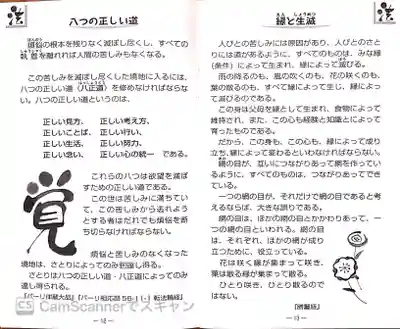 八つの正しい道
煩悩の根本を残りなく滅ぼし尽くし、すべての
執着を離れれば人間の苦しみもなくなる。
この苦しみを滅ぼし尽くした境地に入るには、
八つの正しい道（八正道）を修めなければなら
ない。八つの正しい道というのは、
正しい見方、 正しい考え方、
正しいことば、 正しい行い、
正しい生活、 正しい努力、
正しい念い、 正しい心の統一 である。
覚
これらの八つは欲望を滅ぼ
すための正しい道である。
この世は苦しみに満ちてい
て、この苦しみから逃れよう
とする者はだれでも煩悩を断
ち切らなければならない。
煩悩と苦しみのなくなった
境地は、さとりによってのみ到達し得る。
さとりは八つの正しい道・八正道によってのみ
達し得られる。
― 12 ―
縁と生滅
人びとの苦しみには原因があり、人びとのさと
りには道があるように、すべてのものは、みな縁
（条件）によって生まれ、縁によって滅びる。
雨の降るのも、風の吹くのも、花の咲くのも、
葉の散るのも、すべて縁によって生じ、縁によっ
て滅びるのである。
この身は父母を縁として生まれ、食物によって
維持され、また、この心も経験と知識とによって
育ったものである。
だから、この身も、この心も、縁によって成り
立ち、縁によって変わるといわなければならない。
網の目が、互いにつながりあって網を作ってい
るように、すべてのものは、つながりあってでき
ている。
一つの網の目が、それだけで網の目であると考
えるならば、大きな誤りである。
網の目は、ほかの網の目とかかわりあって、一
つの網の目といわれる。網の目
は、それぞれ、ほかの網が成り
立つために、役立っている。
花は咲く縁が集まって咲き、
葉は散る縁が集まって散る。
ひとり咲き、ひとり散るので
はない。
― 13 ―
CS CamScannerでスキャン